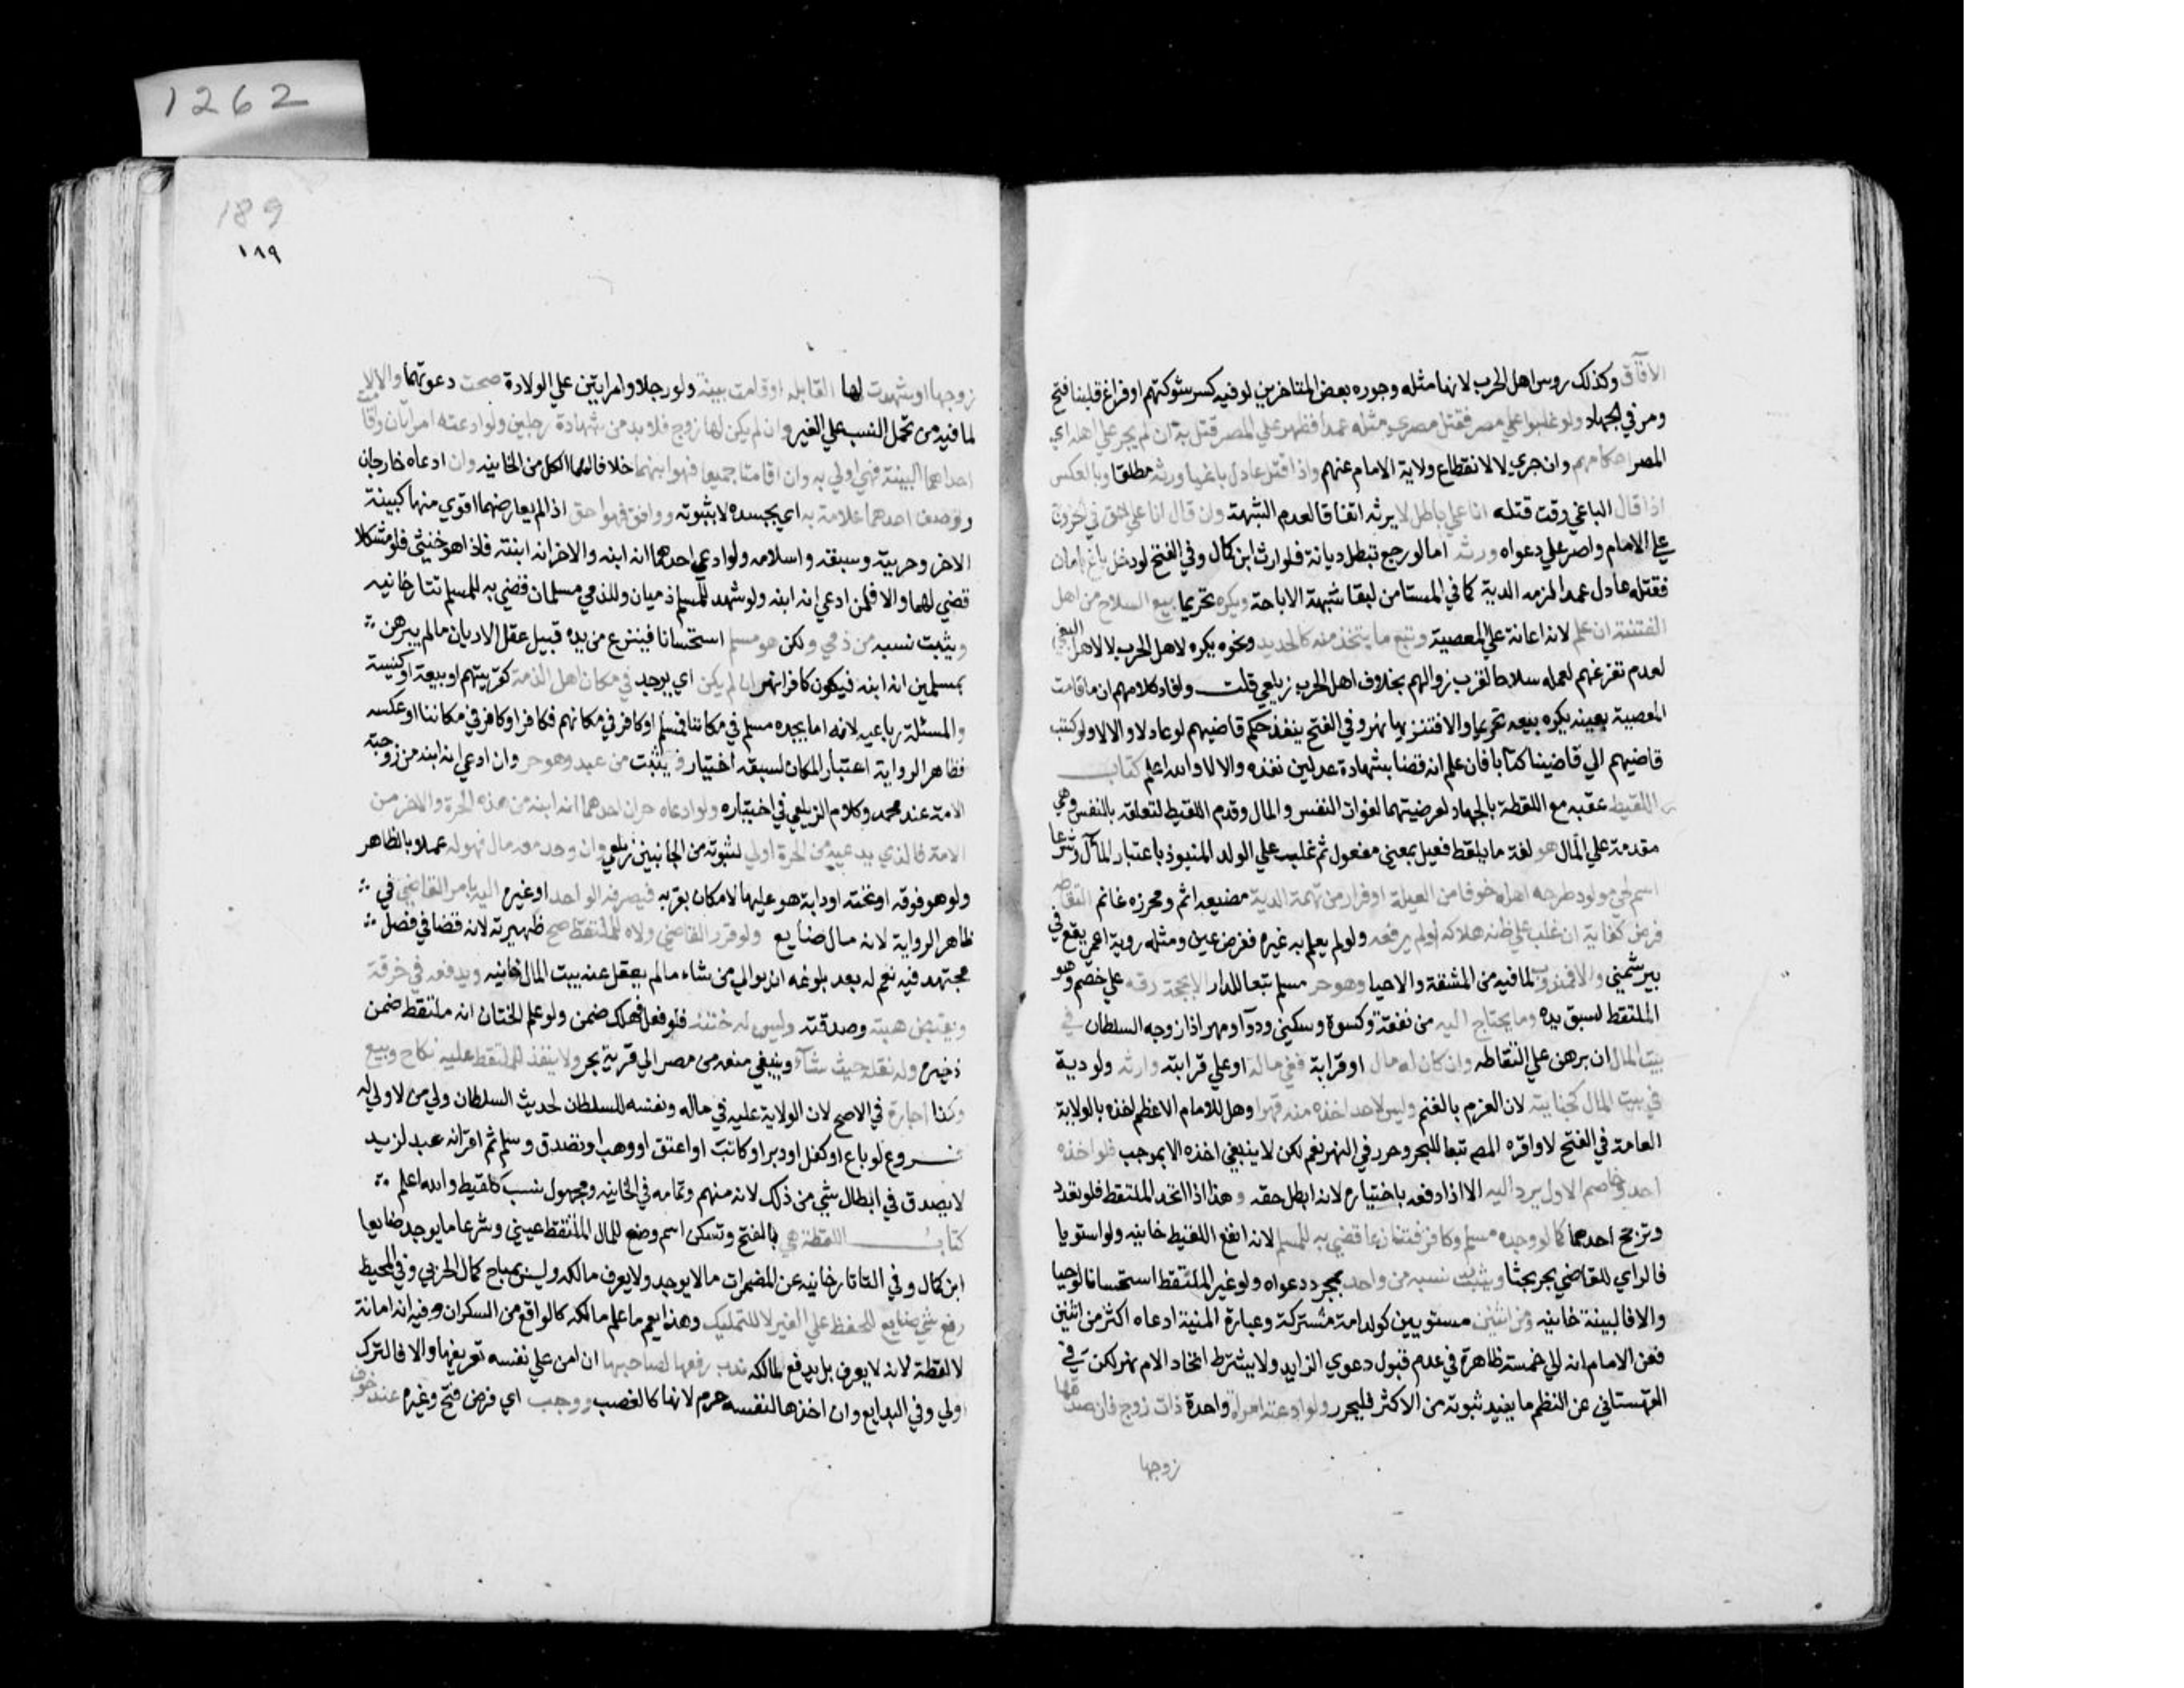 الآفاق وكذلك روس اهل الحرب لانها مثله وجوزه بعض المتاخرين لو فيه كسر شوكتهم او فراغ قلبنا فتح
ومر في الجهاد ولو غلبوا علي مصر فقتل مصري مثله عمدا فظهر علي المصر قتل به ان لم يجر علي اهله اي
المصر احكامهم وان جري لا لانقطاع ولاية الامام عنهم واذا قتل عادل باغيا ورثه مطلقا وبالعكس
اذا قال الباغي وقت قتله انا علي باطل لا يرثه اتفاقا لعدم الشبهة وان قال انا علي الحق في الخروج
علي الامام واصر علي دعواه ورثه اما لو رجع تبطل ديانة فلو ارث ابن كمال وفي الفتح لو دخل باغ بامان
فقتله عادل عمدا لزمه الدية كما في المستامن لبقا شبهة الاباحة ويكره تحريما بيع السلاح من اهل
الفتنة ان علم لانه اعانة علي المعصية وبيع ما يتخذ منه كالحديد ونحوه يكره لاهل الحرب لا لاهل البغي
لعدم تفرغهم لعمله سلاحا لقرب زوالهم بخلاف اهل الحرب زيلعي قلت وافاد كلامهم ان ما قامت
المعصية بعينه يكره بيعه تحريما والا فتنزيها نهر وفي الفتح ينفذ حكم قاضيهم لو عادلا والا لا ولو كتب
قاضيهم الي قاضينا كتابا فان علم انه قضا بشهادة عدلين نفذه والا لا والله اعلم كتاب
اللقيط عقبه مع اللقطة بالجهاد لعرضيتهما لفوات النفس والمال وقدم اللقيط لتعلقه بالنفس وهي
مقدمة علي المال هو لغة ما يلقط فعيل بمعني مفعول ثم غلب علي الولد المنبوذ باعتبار المآل وشرعا
اسم لحي مولود طرحه اهله خوفا من العيلة او فرارا من تهمة الريبة مضيعه اثم ومحرزه غانم التقاطه
فرض كفاية ان غلب علي ظنه هلاكه لو لم يرفعه ولو لم يعلم به غيره ففرض عين ومثله روية اعمي يقع في
بير شمني والا فمندوب لما فيه من الشفقة والاحيا وهو حر مسلم تبعا للدار الا بحجة رقه علي خصم وهو
الملتقط لسبق يده وما يحتاج اليه من نفقة وكسوة وسكني ودوا ومهر اذا زوجه السلطان في
بيت المال ان برهن علي التقاطه وان كان له مال او قرابة ففي ماله او علي قرابته وارثه ولو دية
في بيت المال كجنايته لان الغرم بالغنم وليس لاحد اخذه منه قهرا وهل للامام الاعظم اخذه بالولاية
العامة في الفتح لا واقره المص تبعا للبحر وحرر في النهر نعم لكن لا ينبغي اخذه الا بموجب فلو اخذه
احد وخاصم الاول يرد اليه الا اذا دفعه باختياره لانه ابطل حقه وهذا اذا اتحد الملتقط فلو تعدد
وترجح احدهما كما لو وجده مسلم وكافر فتنازعا قضي به للمسلم لانه انفع اللقيط خانيه ولو استويا
فالراي للقاضي بحر بحثا ويثبت نسبه من واحد بمجرد دعواه ولو غير الملتقط استحسانا لو حيا
والا فالبينة خانيه ومن اثنين مستويين كولد امة مشتركة وعبارة المنية ادعاه اكثر من اثنين
فعن الامام انه الي خمسة ظاهرة في عدم قبول دعوي الزايد ولا يشترط اتحاد الام نهر لكن في
القهستاني عن النظم ما يفيد ثبوته من الاكثر فليحرر ولو ادعته امراة واحدة ذات زوج فان صدقها
زوجها
1262
189
١٨٩
زوجها او شهدت لها القابله او قامت بينة ولو رجلا وامراتين علي الولادة صحت دعوتهما والا لا
لما فيه من تحمل النسب علي الغير وان لم يكن لها زوج فلا بد من شهادة رجلين ولو ادعته امراتان واقامت
احداهما البينة فهي اولي به وان اقامتا جميعا فهو ابنهما خلافا لهما الكل من الخانيه وان ادعاه خارجان
ووصف احدهما علامة به اي بجسده لا بثوبه ووافق فهو احق اذا لم يعارضهما اقوي منها كبينة
الاخر وحريته وسبقه واسلامه ولو ادعي احدهما انه ابنه والاخر انه ابنته فاذا هو خنثي فلو مشكلا
قضي لهما والا فلمن ادعي انه ابنه ولو شهد للمسلم ذميان وللذمي مسلمان قضي به للمسلم تتارخانيه
ويثبت نسبه من ذمي ولكن هو مسلم استحسانا فينزع من يده قبيل عقل الاديان ما لم يبرهن
بمسلمين انه ابنه فيكون كافرا نهر ان لم يكن اي يوجد في مكان اهل الذمة كقريتهم او بيعة او كنيسة
والمسئلة رباعيه لانه اما يجده مسلم في مكاننا فمسلم او كافر في مكانهم فكافر او كافر في مكاننا او عكسه
فظاهر الرواية اعتبار المكان لسبقه اختيار ويثبت من عبد وهو حر وان ادعي انه ابنه من زوجته
الامة عند محمد وكلام الزيلعي في اختياره ولو ادعاه حران احدهما انه ابنه من هذه الحرة والاخر من
الامة فالذي يدعيه من الحرة اولي لثبوته من الجانبين زيلعي وان وجد معه مال فهو له عملا بالظاهر
ولو هو فوقه او تحته او دابة هو عليها لا مكان بقربه فيصرفه الواحد او غيره اليه بامر القاضي في
ظاهر الرواية لانه مال ضايع ولو قرر القاضي ولاه للملتقط صح ظهيرته لانه قضا في فصل
مجتهد فيه نعم له بعد بلوغه ان يوالي من شاء ما لم يعقل عنه بيت المال خانيه ويدفعه في حرفة
ويقبض هبته وصدقته وليس له ختنه فلو فعل فهلك ضمن ولو علم الختان انه ملتقط ضمن
ذخيره وله نقله حيث شاء وينبغي منعه من مصر الي قرية بحر ولا ينفذ للملتقط عليه نكاح وبيع
وكذا اجارة في الاصح لان الولاية عليه في ماله ونفسه للسلطان لحديث السلطان ولي من لا ولي له
فروع لو باع او كفل او دبر او كاتب او اعتق او وهب او تصدق وسلم ثم اقر انه عبد لزيد
لا يصدق في ابطال شي من ذلك لانه متهم وتمامه في الخانيه ومجهول نسب كلقيط والله اعلم
كتاب اللقطة هي بالفتح وتسكن اسم وضع للمال الملتقط عيني وشرعا ما يوجد ضايعا
ابن كمال وفي التاتارخانيه عن المضمرات مال يوجد ولا يعرف مالكه وليس بمباح كمال الحربي وفي المحيط
رفع شي ضايع للحفظ علي الغير لا للتمليك وهذا يعم ما علم مالكه كالواقع من السكران وفيه انه امانة
لا لقطة لانه لا يعرف بل يدفع لمالكه ندب رفعها لصاحبها ان امن علي نفسه تعريفها والا فالترك
اولي وفي البدايع وان اخذها لنفسه حرم لانها كالغصب ووجب اي فرض فتح وغيره عند خوف